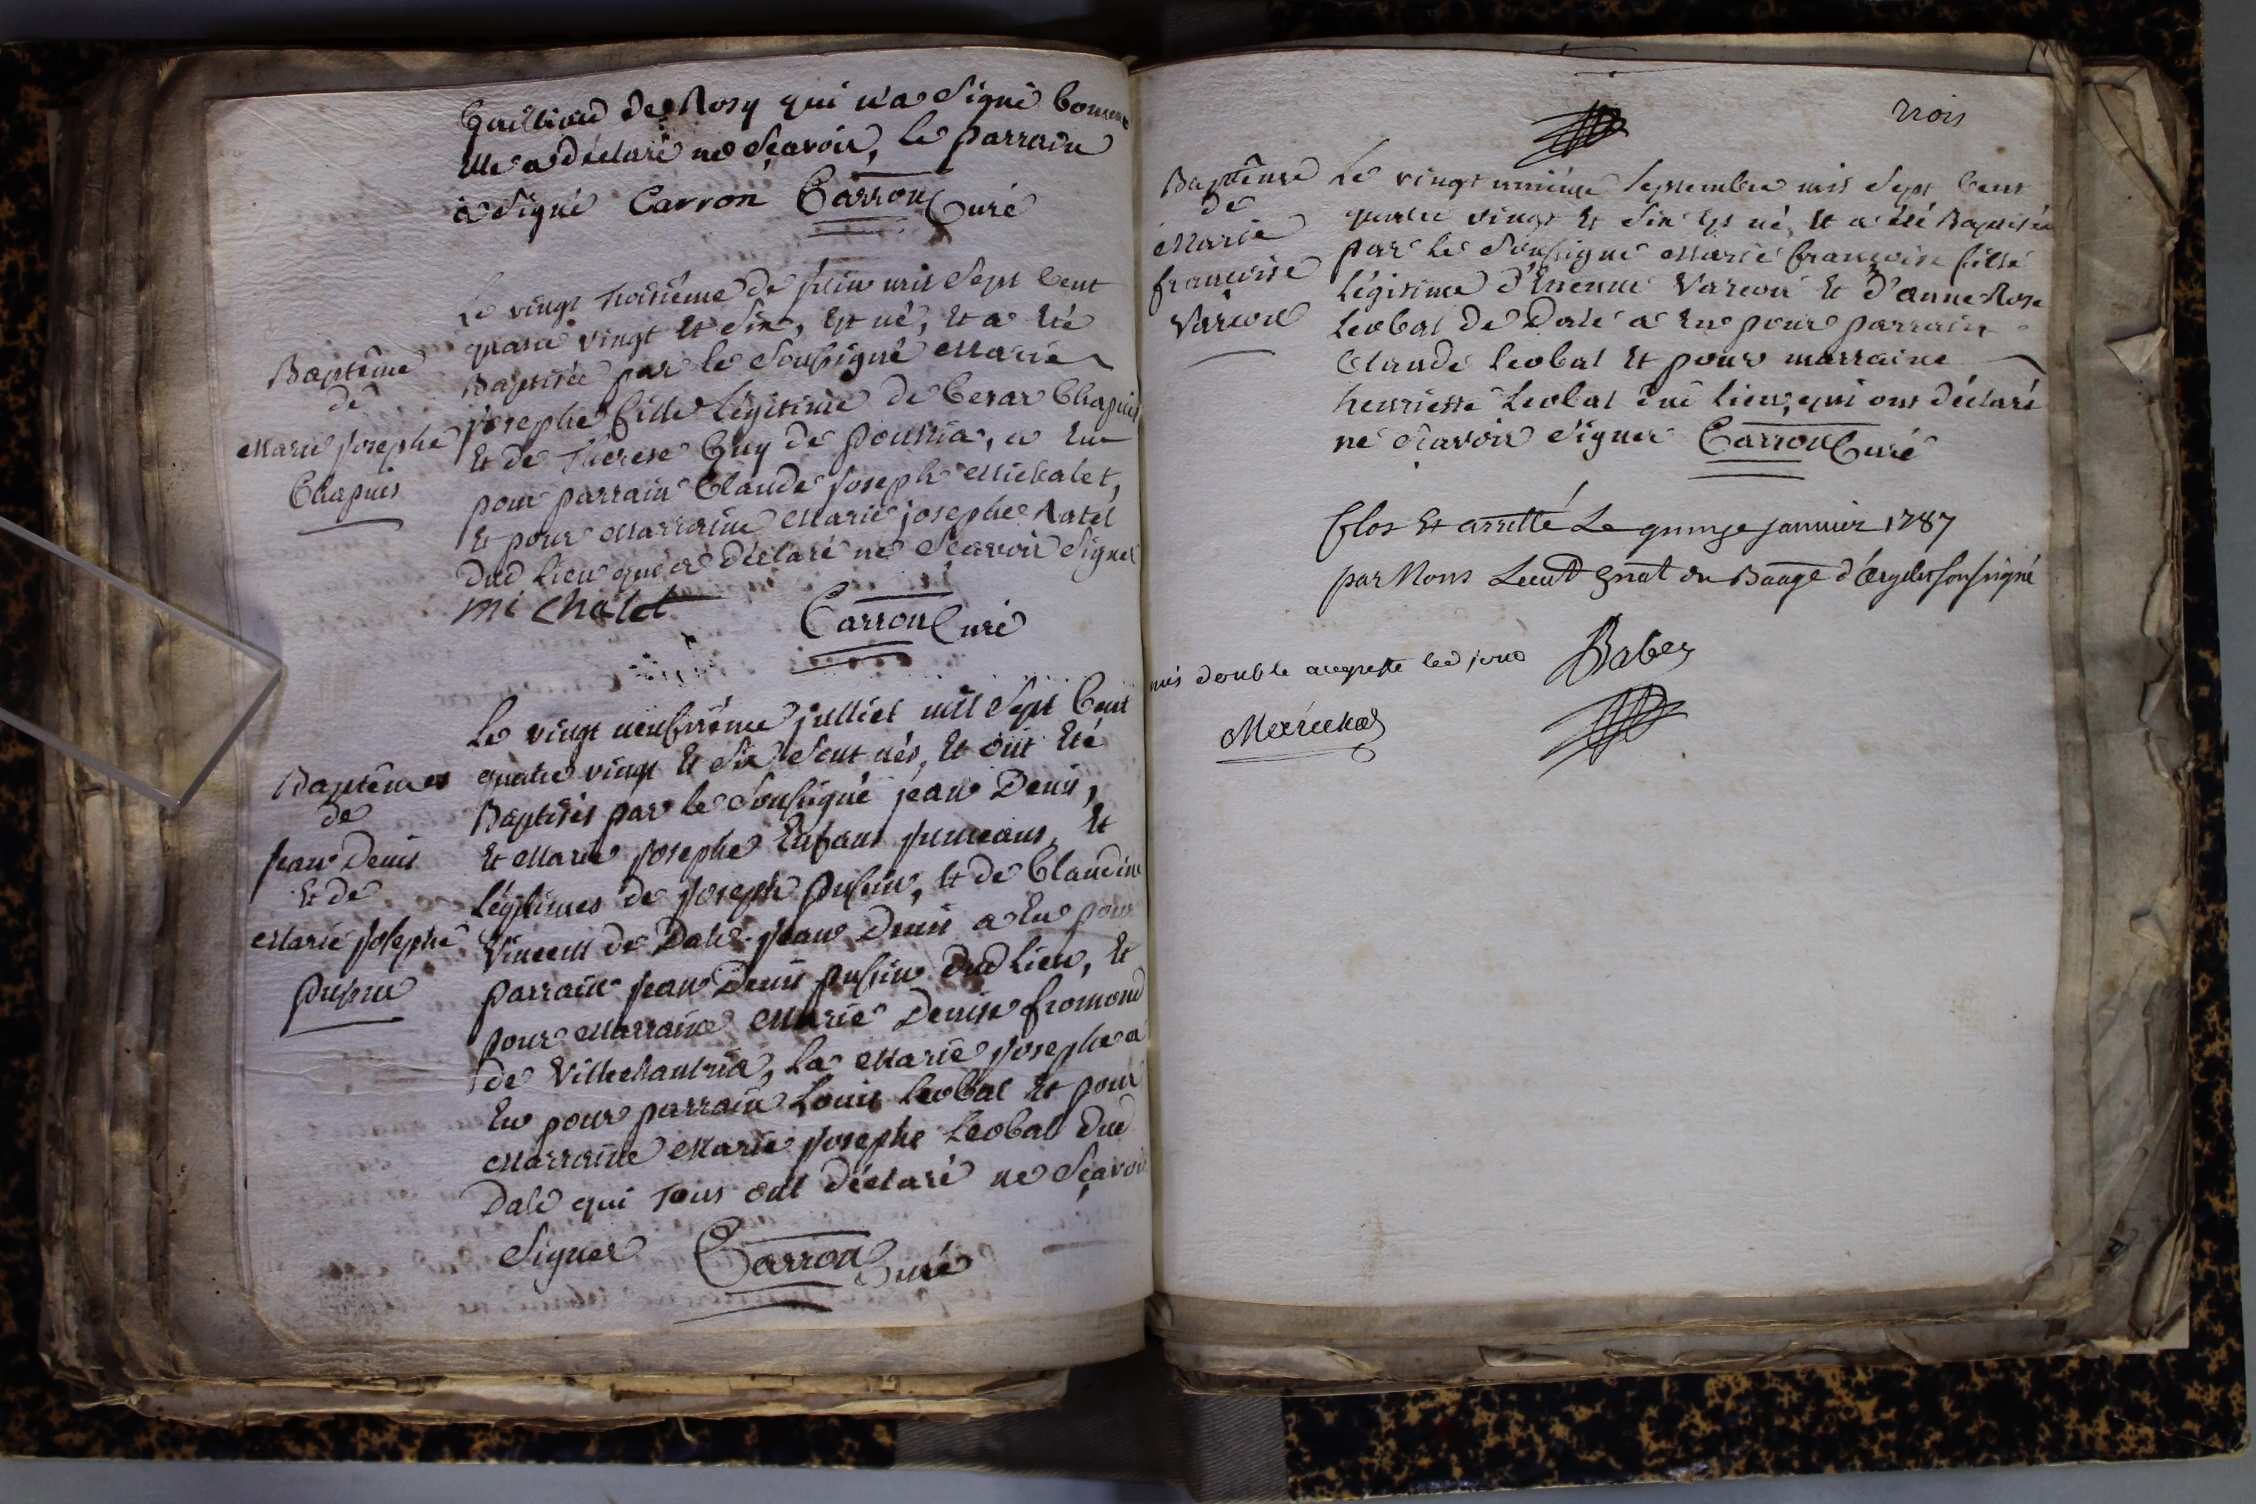 de Rosy qui n'a Signé Comme
elle a déclaré ne Sçavoir, le parrain
a Signé Carron Carron Curé
Le vingt Troisiéme de juin mil Sept Cent
quatre vingt Et Six, Est né, Et a Eté
Baptisée par le Soussigné Marie
josephe fille Légitime de Cesar Chapuis
Et de Thérese Guy de Poussia, a Eu
pour parrain Claude joseph Michalet,
Et pour Marraine Marie josephe Ratel
Dud Lieu qui a déclaré ne Sçavoir Signer
Baptême
de
Marie josephe
Chapuis
mi chalet Carron Curé
Le vingt neufviéme julliet mil Sept Cent
quatre vingt Et Six Sont nés, Et ont Eté
Baptisés par le Soussigné jean Denis,
Et Marie josephe Enfans jumeaux, Et
Légitimes de joseph Pussin, Et de Claudine
Vincent de Dale. jean Denis a Eu pour
parrain jean Denis pussin Dud Lieu, Et
pour Marraine Marie Denise fromond
de Villechantria, La Marie josephe a
Eu pour parrain Louis Leobal Et pour
Marraine Marie josephe Leobal Dud
Dale qui Tous ont déclaré ne Sçavoir
Signer Carron Curé
Baptêmes
de
jean Denis
Et de
Marie josephe
Pussin
trois
Baptême
de
Marie
françoise
Varcon
Le vingt uniéme Septembre mil Sept Cent
quatre vingt Et Six Est né, Et a été Baptisée
par le Soussigné Marie françoise fille
Légitime d'Etienne Varcon Et d'anne Rose
Leobal de Dale a Eu pour parrain
Claude Leobal Et pour marraine
henriette Leobal dud lieu, qui ont déclaré
ne sçavoir Signer Carron Curé
Clos Et arretté Le quinze janvier 1787
par Nous Lieutt gnal du Baage d'Orgelet soussigné
Babey
mis double au greffe led jour